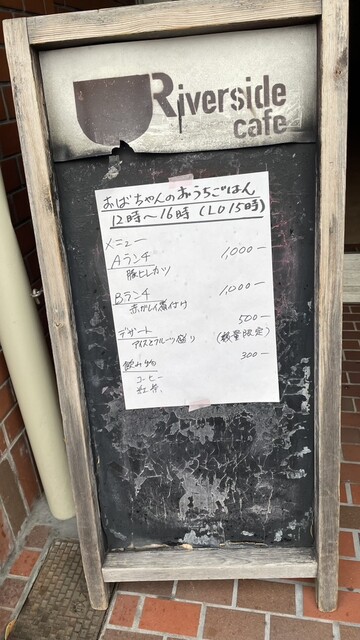 Riverside
cafe
おばちゃんのおうちごはん
12時〜16時 (LO 15時)
メニュー
Aランチ 1,000−
豚ヒレカツ
Bランチ 1,000−
赤かレイ煮付け
デザート 500−
アイスとフルーツ盛り (数量限定)
飲み物 300−
コーヒー
紅茶